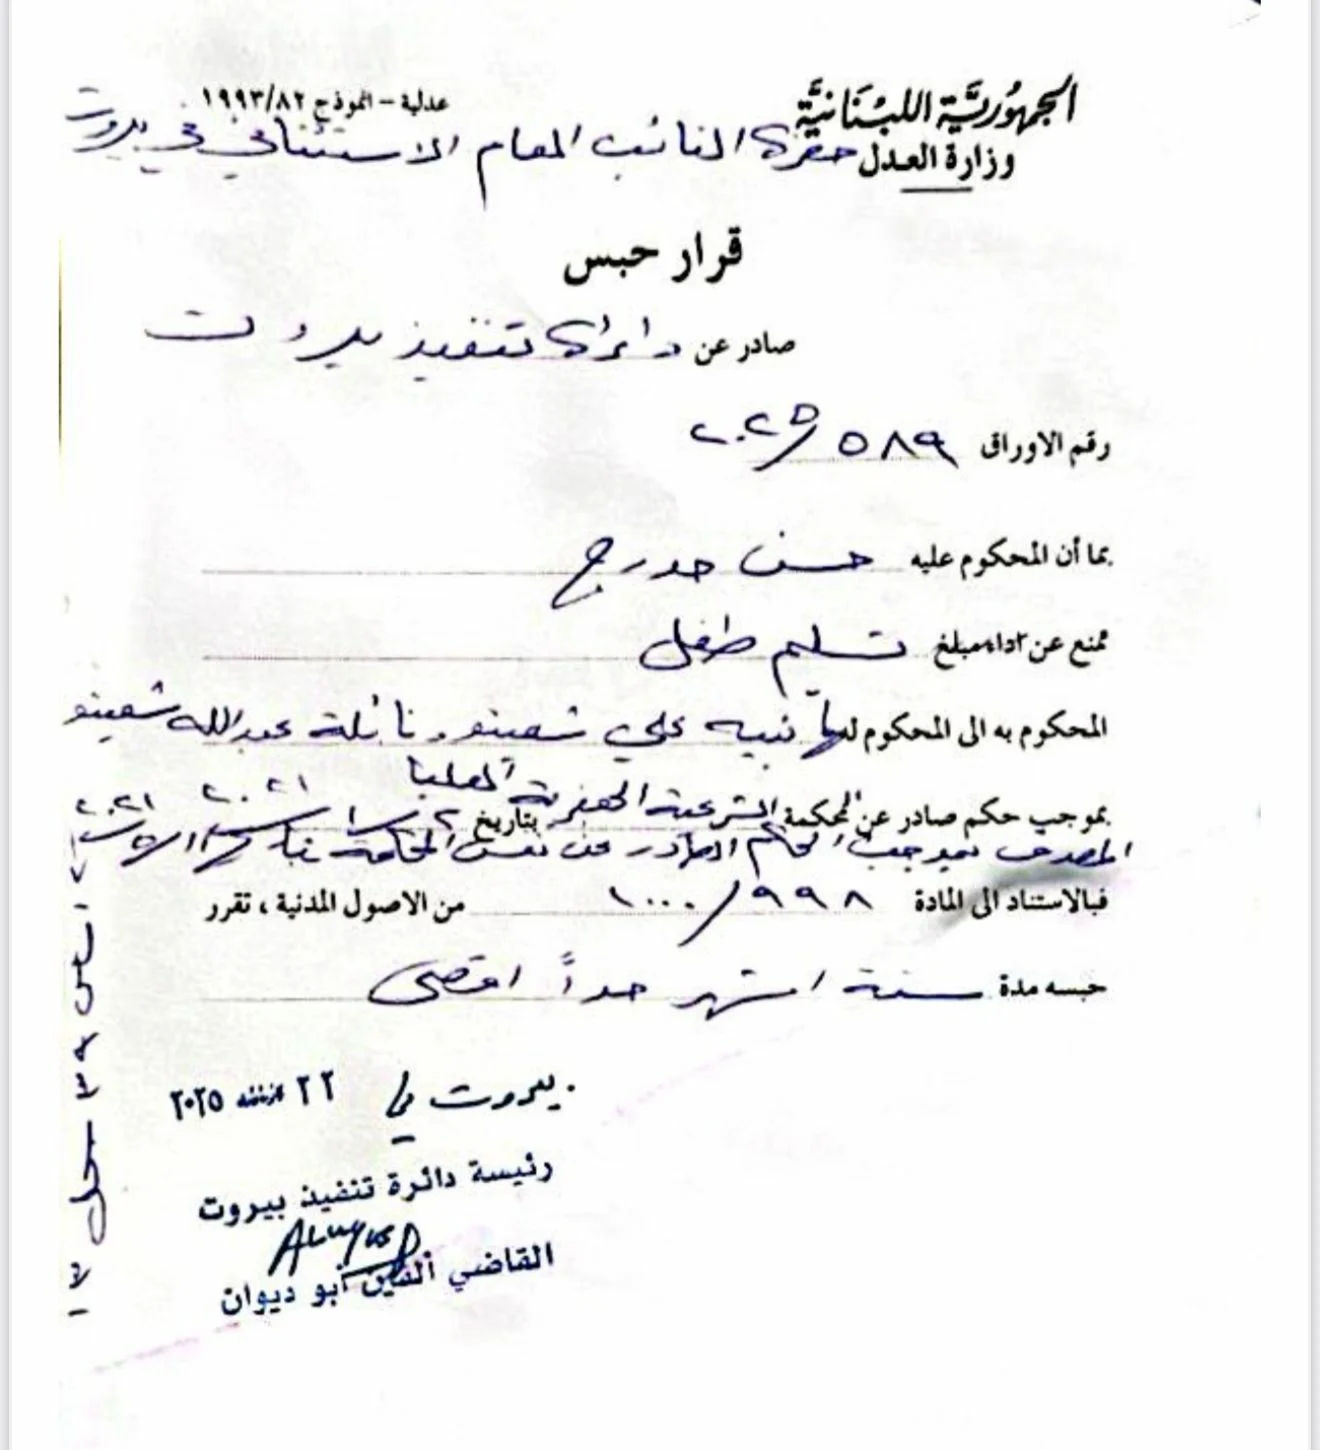 الجمهورية اللبنانية
وزارة العدل
عدلية - النموذج ١٩٩٣/٨٢
حضرة النائب العام الاستئنافي في بيروت
قرار حبس
صادر عن دائرة تنفيذ بيروت
رقم الاوراق ٥٨٩/٢٠٢٥
بما أن المحكوم عليه حسن حدرج
تمنع عن تسليم طفل
المحكوم به الى المحكوم لهما نبيه علي شعيتو ونائلة عبدالله شعيتو
بموجب حكم صادر عن المحكمة الشرعية الجعفرية العليا بتاريخ ٢٠٢١
المصدق بموجب الحكم الصادر عن نفس المحكمة ٢٠٢١
فبالاستناد الى المادة ٩٩٨/١٠٠٠ من الاصول المدنية ، تقرر
حبسه مدة ستة اشهر حداً اقصى
بيروت في ٢٢ ٢٠٢٥
رئيسة دائرة تنفيذ بيروت
القاضي ألفين أبو ديوان